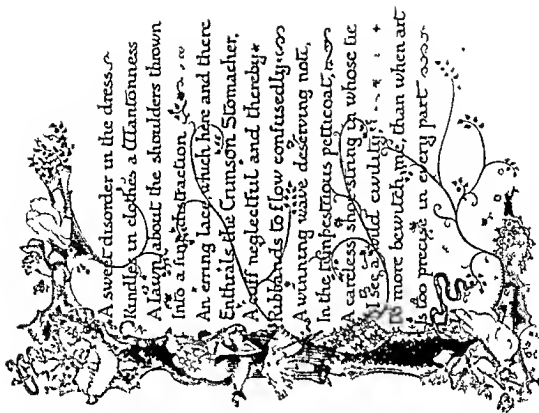 A sweet disorder in the dress
Kindles in clothes a Wantonness
A lawn about the shoulders thrown
Into a fine distraction
An erring Lace, which here and there
Enthrals the Crimson Stomacher,
A cuff neglectful and thereby
Ribbands to flow confusedly
A winning wave deserving note,
In the tempestuous petticoat,
A careless shoe-string in whose tie
I see a wild civility
more bewitch me, than when art
Is too precise in every part